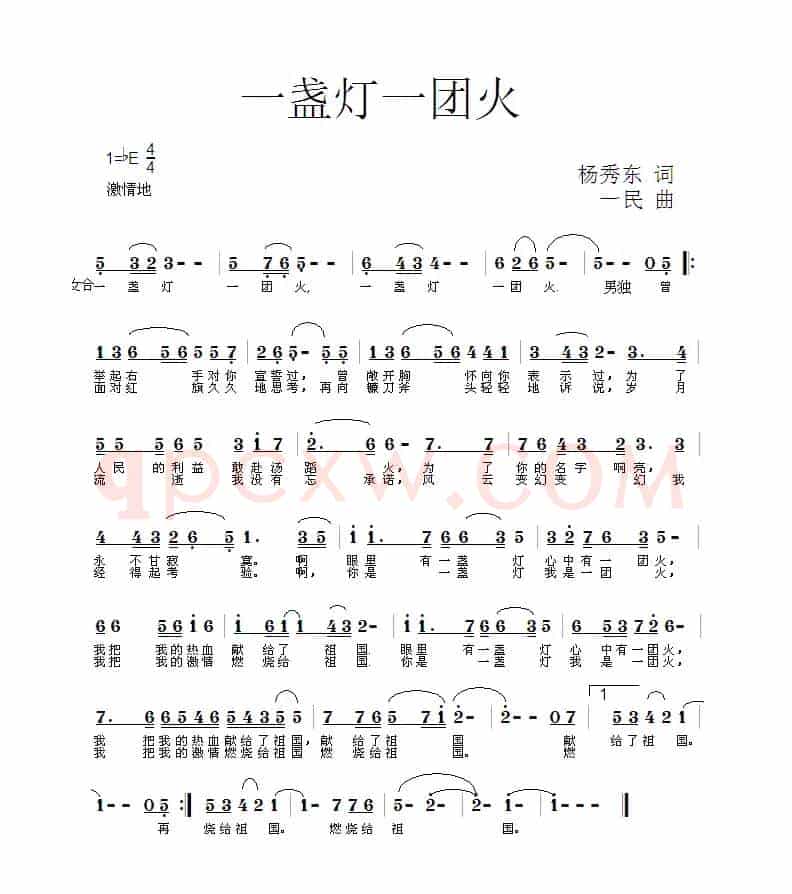 一盏灯一团火
1=♭E 4/4
激情地
杨秀东 词
一民 曲
5 3 2 3 - - | 5 7 6 5 - - | 6 4 3 4 - - | 6 2 6 5 - | 5 - 0 5 ‖:
女合 一 盏 灯 一 团 火, 一 盏 灯 一 团 火. 男独 曾
1 3 6 5 6 5 5 7 | 2 6 5 - 5 5 | 1 3 6 5 6 4 4 1 | 3 4 3 2 - | 3. 4
举起右 手对你 宣誓过, 曾 敞开胸 怀向你 表示过, 为了
面对红 旗久久 地思考, 再向 镰刀斧 头轻轻 地诉说, 岁月
5 5 5 6 5 3 1 7 | 2. 6 6 - | 7. 7 7 6 4 3 | 3. 3
人民的利益 敢赴汤 蹈 火, 为了 你的名字 响亮,
流 逝 我没有忘 承诺, 风云 变幻变 幻我
qpcxw.com
4 4 3 2 6 5 | 1. 3 5 | 1 1. 7 6 6 3 | 3 2 7 6 3 5 -
永 不甘寂 寞。 啊 眼里 有一盏 灯 心中有一团火,
经得起考 验。 啊, 你是 一盏 灯 我是一团 火,
6 6 5 6 1 | 1 6 1 1 4 3 2 - | 1 1. 7 6 6 3 5 | 6 5 3 7 2 2 -
我把 我的热血 献给了 祖国. 眼里 有一盏 灯 心中有一团火,
我把 我的激情 燃烧给 祖国. 你是 一盏 灯 我是一团火,
7. 6 6 5 4 6 5 4 3 5 5 | 7 7 6 5 7 1 2 - | 2 - - 0 7 | 1 5 3 4 2 1 |
我 把我的热血献给了祖国, 献给了祖 国 献 给了祖 国。
我 把我的激情燃烧给祖国, 燃烧给祖 国。 燃
1 - - 0 5 :‖ 5 3 4 2 1 | 1 - 7 7 6 | 5 - 2 - 2 | 1 - 1 - ‖
再 烧给祖 国。 燃烧给祖 国。